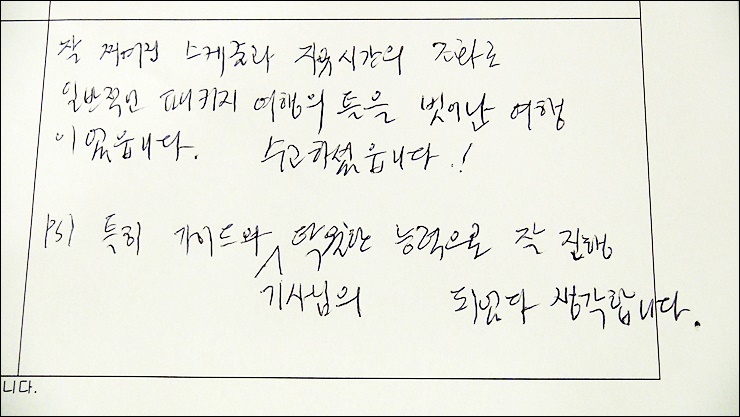 잘 짜여진 스케쥴과 자유시간의 조화로
일반적인 패키지 여행의 틀을 벗어난 여행
이었읍니다. 수고하셨읍니다.!
PS) 특히 가이드와 탁월한 능력으로 잘 진행
기사님의 되었다 생각합니다.
니다.